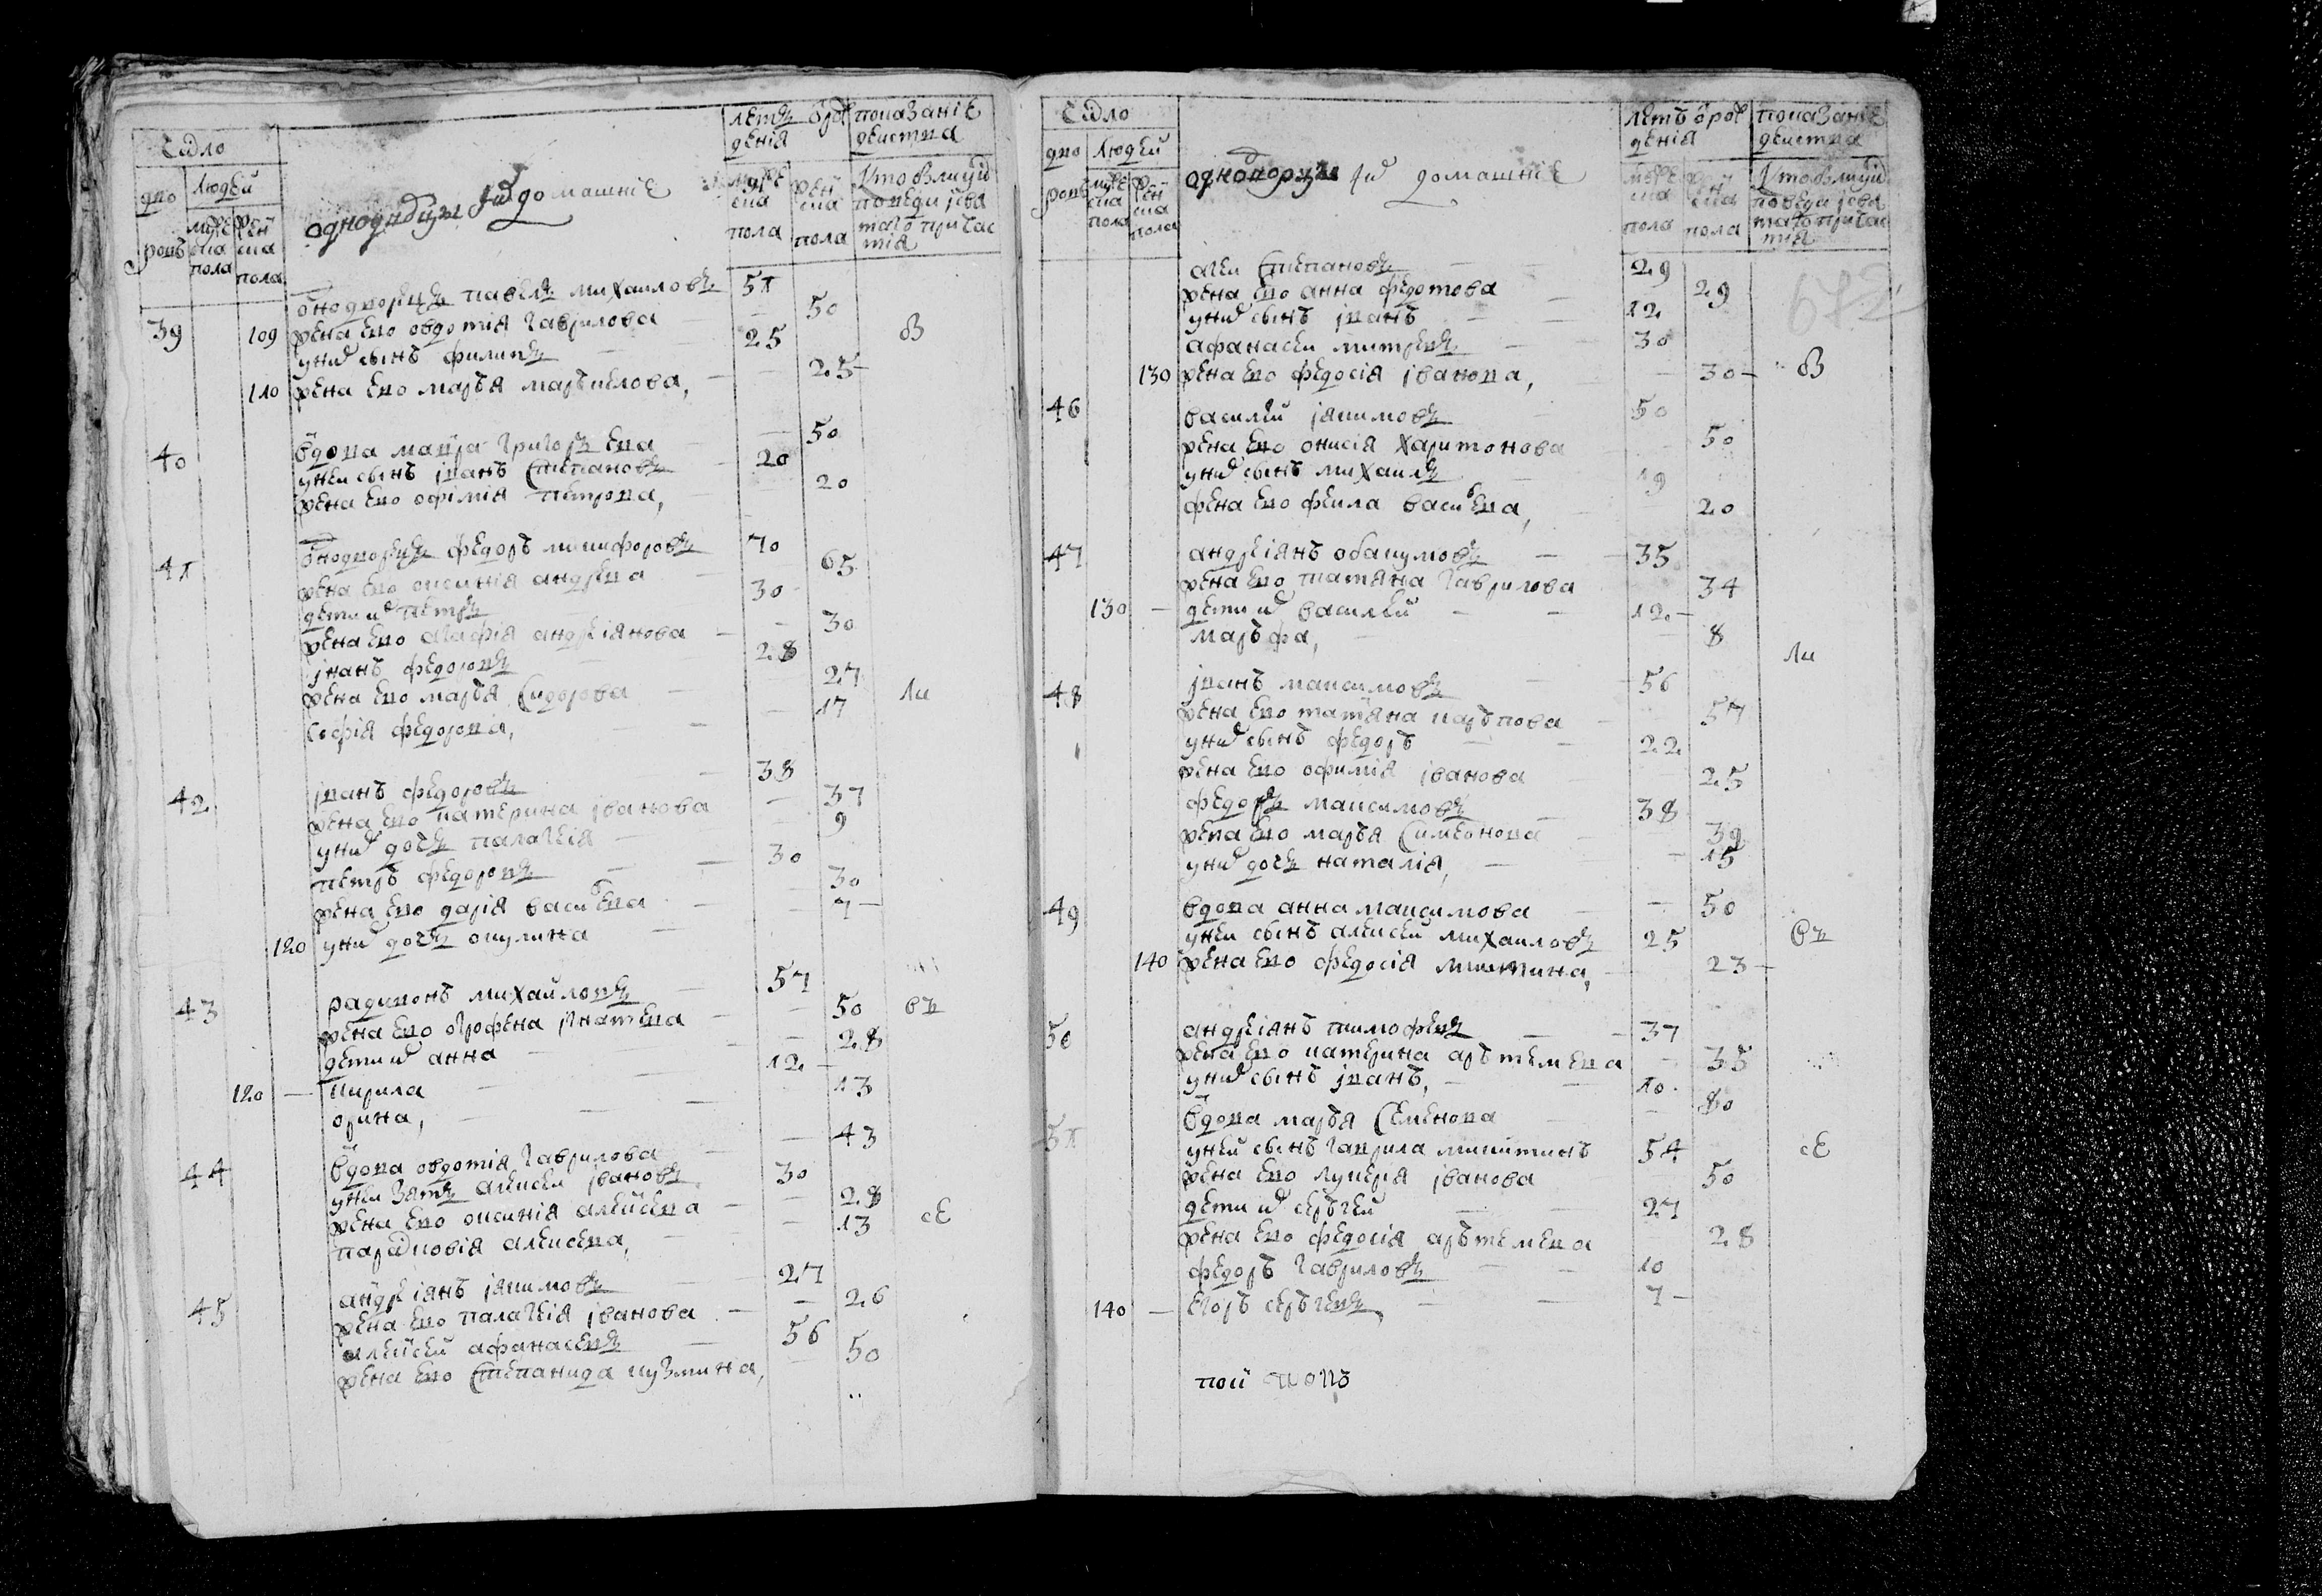 Число
дво
ровъ
людей
мужеска пола
женска пола
однодворцы и их домашние
лет от рождения
мужеска пола
женска пола
показание действа
кто был у исповеди и святаго причастия
39 однодворецъ павелъ михаиловъ 51
109 жена ево овдотія гаврилова 50
у них сынъ филипъ 25 в
110 жена ево марья маркелова, 25
40 вдова мавра григорьева 50
у неи сынъ иванъ степановъ 20
жена ево офимія петрова, 20
41 однодворецъ федоръ никифоровъ 70
жена ево оксинія андреева 65
дети их петръ 30
жена ево агафія андреіянова 30
иванъ федоровъ 28
жена ево марья сидорова 27
софія федорова, 17 ли
42 иванъ федоровъ 38
жена ево катерина іванова 37
у них дочь палагея 9
петръ федоровъ 30
жена ево дарія василева 30
120 у них дочь окулина 7
43 радивонъ михайловъ 57
жена ево огрофена игнатева 50 ев
дети их анна 28
120 кирила 12
орина, 13
44 вдова овдотія гаврилова 43
у неи зять алексеи івановъ 30
жена ево оксинія алексеева 28
парасковія алексеева, 13 се
45 андреіянъ іакимовъ 27
жена ево палагея іванова 26
алексей афанасевъ 56
жена ево степанида кузмина, 50
Число
дво
ровъ
людей
мужеска пола
женска пола
однодворцы и их домашние
летъ от рождения
мужеска пола
женска пола
показание действа
кто был у исповеди и святаго причастия
672
степановъ 29
жена ево анна федотова 29
у них сынъ иванъ 12
афанасеи митревъ 30
130 жена ево федосія іванова, 30 в
46 василей іакимовъ 50
жена ево онисія харитонова 50
у них сынъ михаилъ 19
жена ево фекла василева, 20
47 андреіянъ обакумовъ 35
жена ево татяна гаврилова 34
130 дети их василей 12
маръфа, 8
ли
48 иванъ максимовъ 56
жена ево татяна карпова 57
у них сынъ федоръ 22
жена ево офимія іванова 25
федоръ максимовъ 38
жена ево марья симеонова 39
у них дочь наталія, 15
49 вдова анна максимова 50
у неи сынъ алексей михаиловъ 25 ев
140 жена ево федосія никитина, 23
50 андреіянъ тимофеевъ 37
жена ево катерина артемева 35
у них сынъ иванъ, 10
51 вдова марья семенова 80
у ней сынъ гаврила никитинъ 54 се
жена ево лукеря іванова 50
дети их сергей 27
жена ево федосія артемева 28
федоръ гавриловъ 10
140 егоръ сергеевъ, 7
попъ